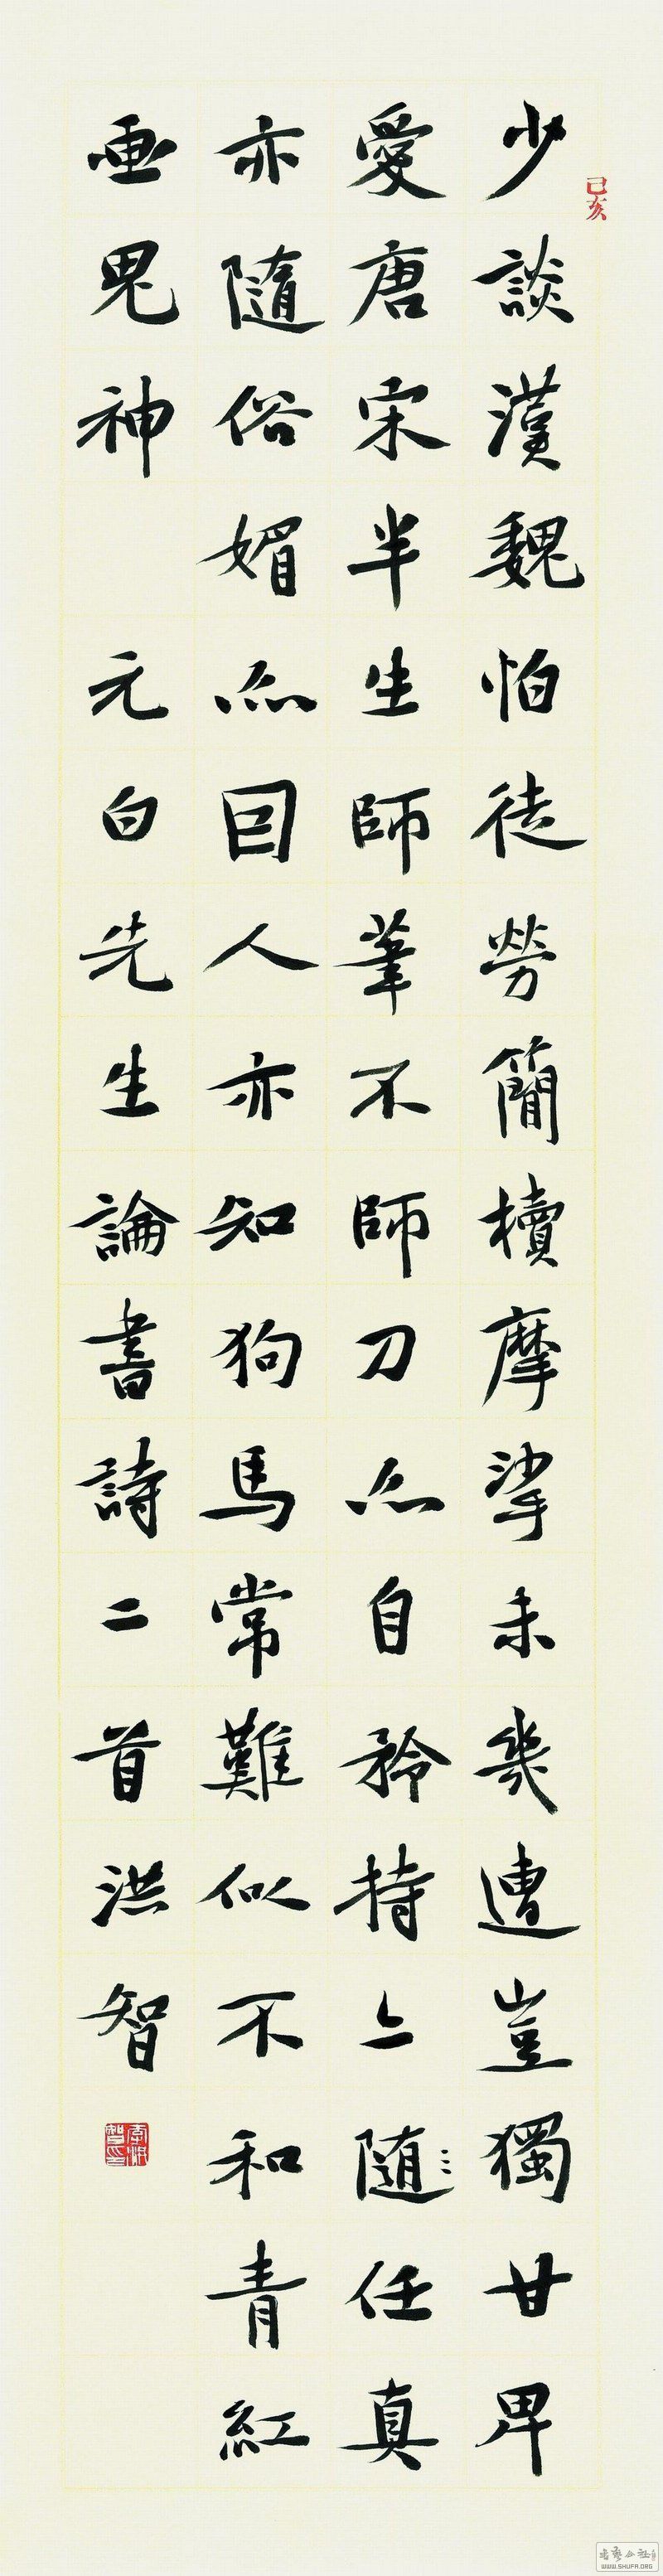 己亥
少談漢魏怕徒勞簡櫝摩挲未幾遭豈獨甘卑
愛唐宋半生師筆不師刀亦自矜持亦随任真
亦隨俗媚亦囙人亦知狗馬常難似不和青紅
画鬼神 元白先生論書詩二首洪智
李洪智印
书艺公社
WWW.SHUFA.ORG